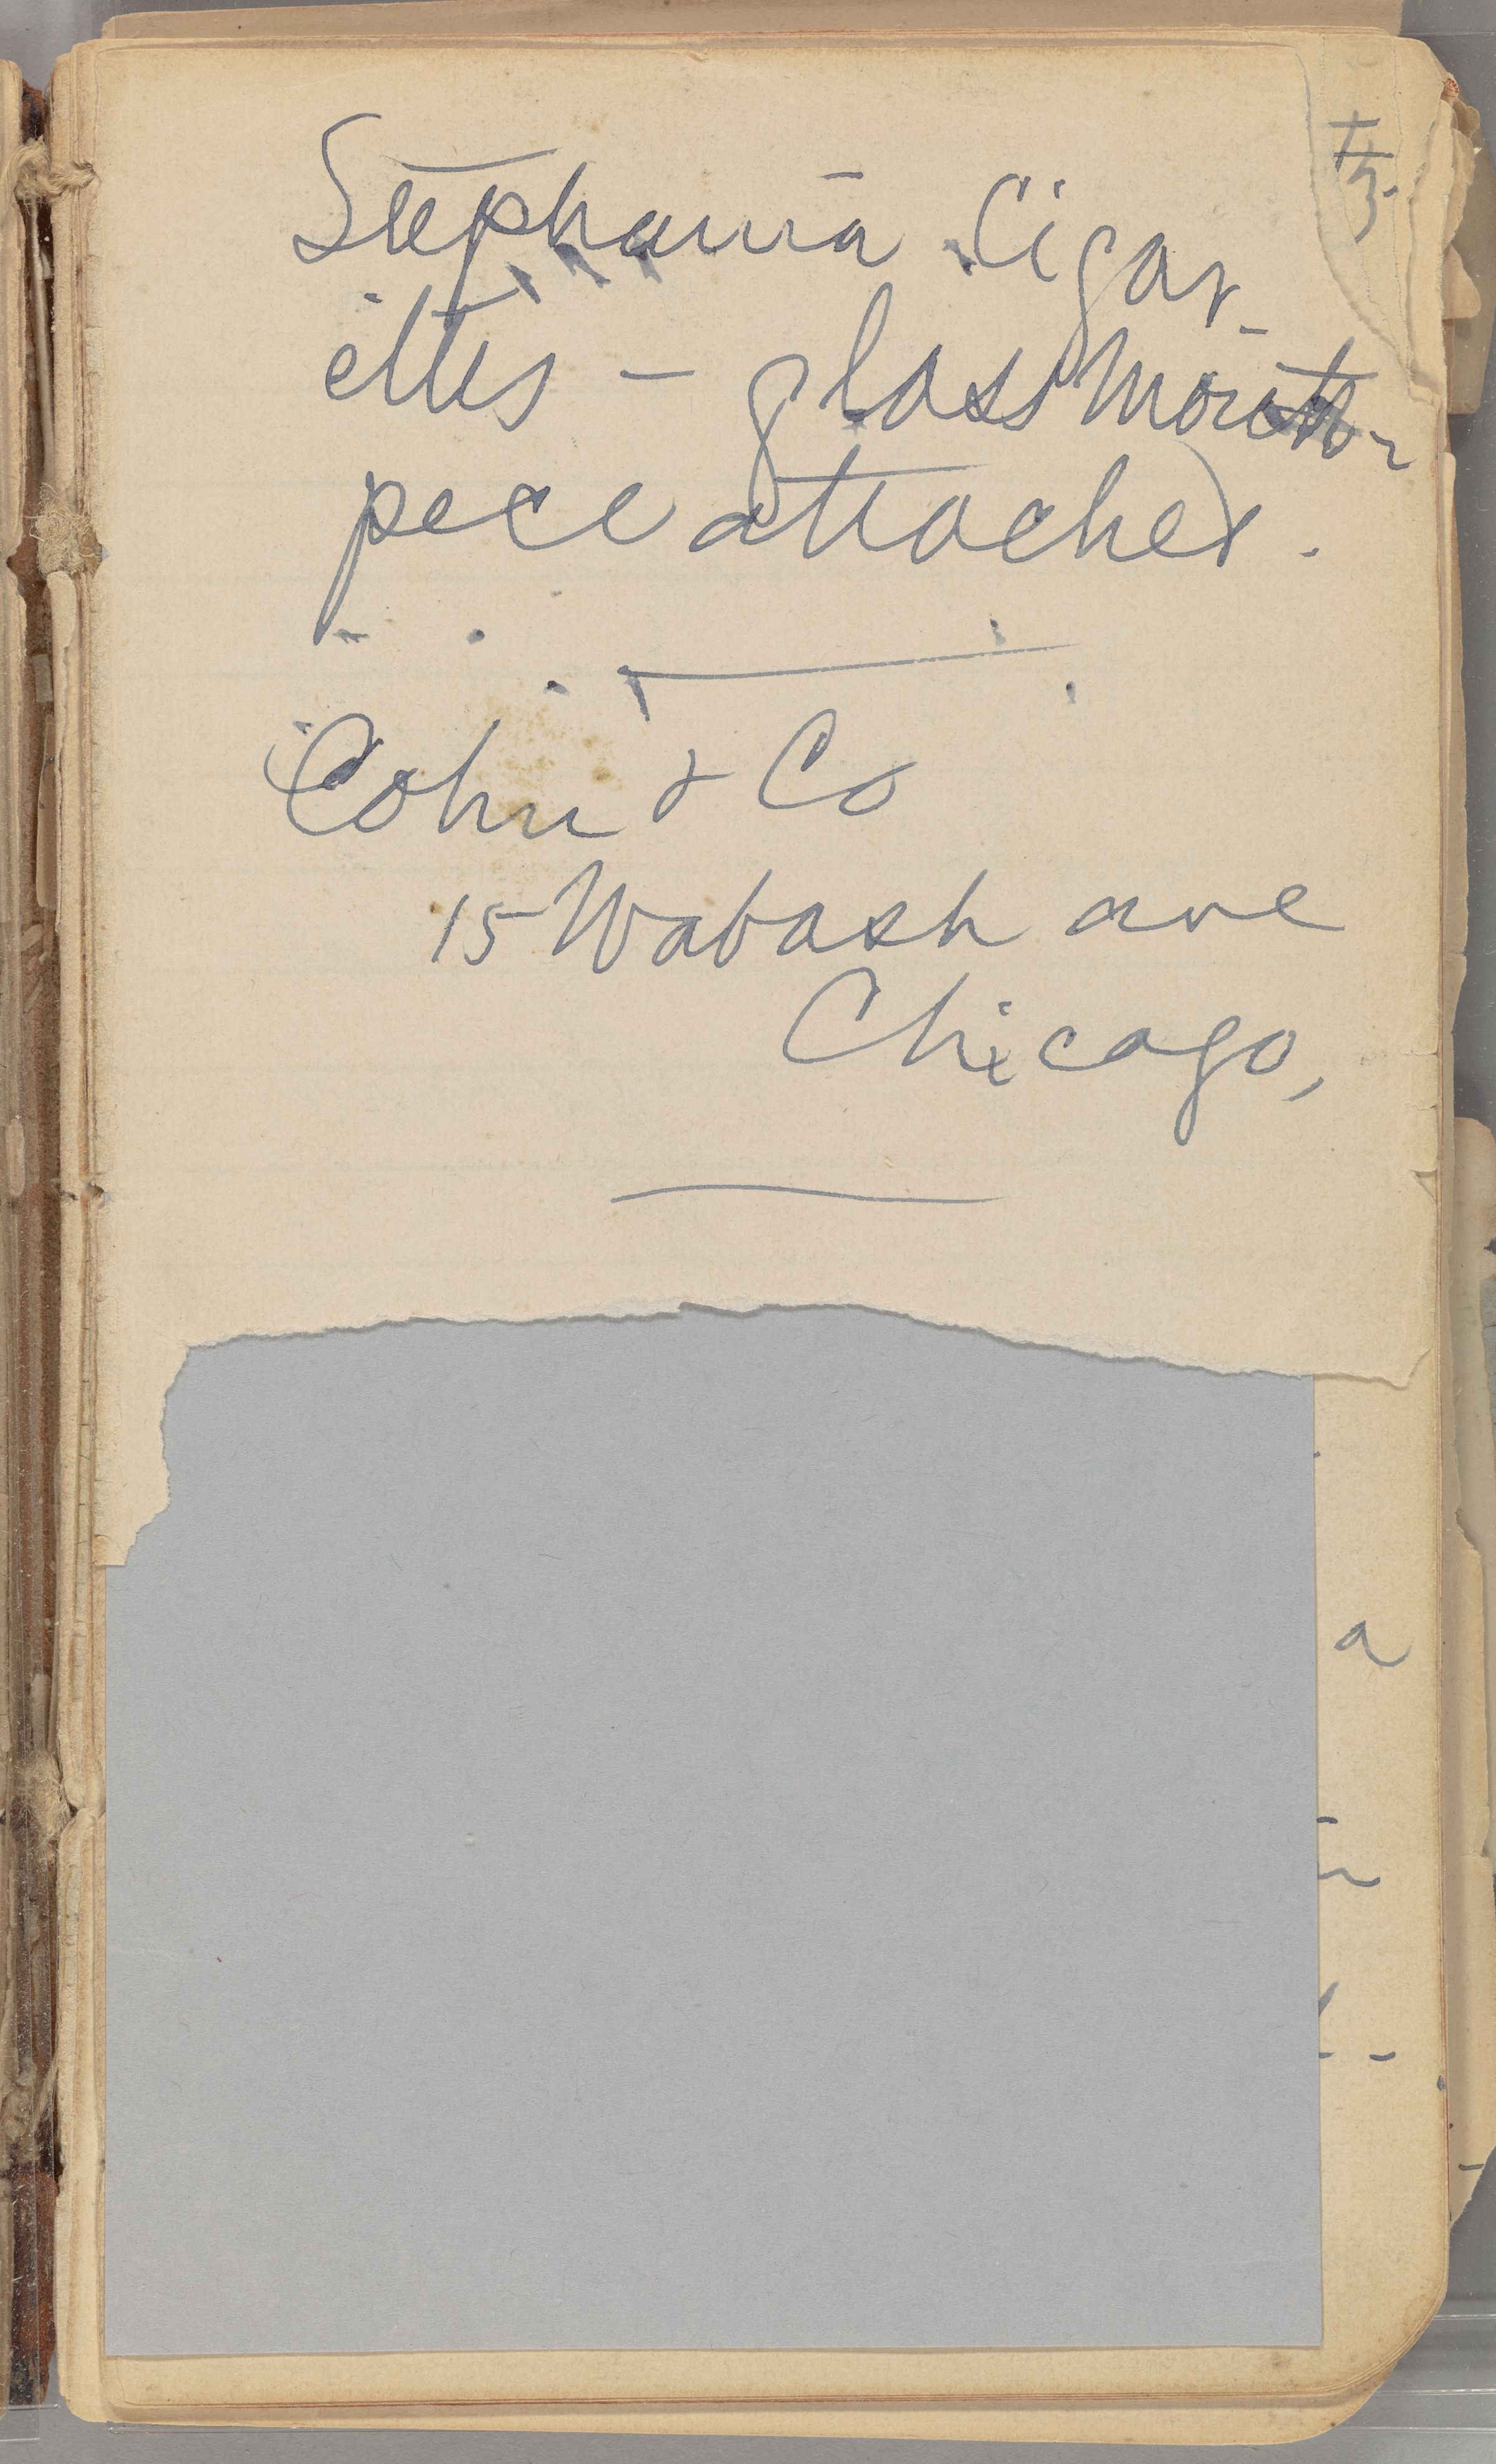 Stephania Cigar-
ettes – glass Mouth-
pece attached.
Cohn & Co
15 Wabash ave
Chicago,
a